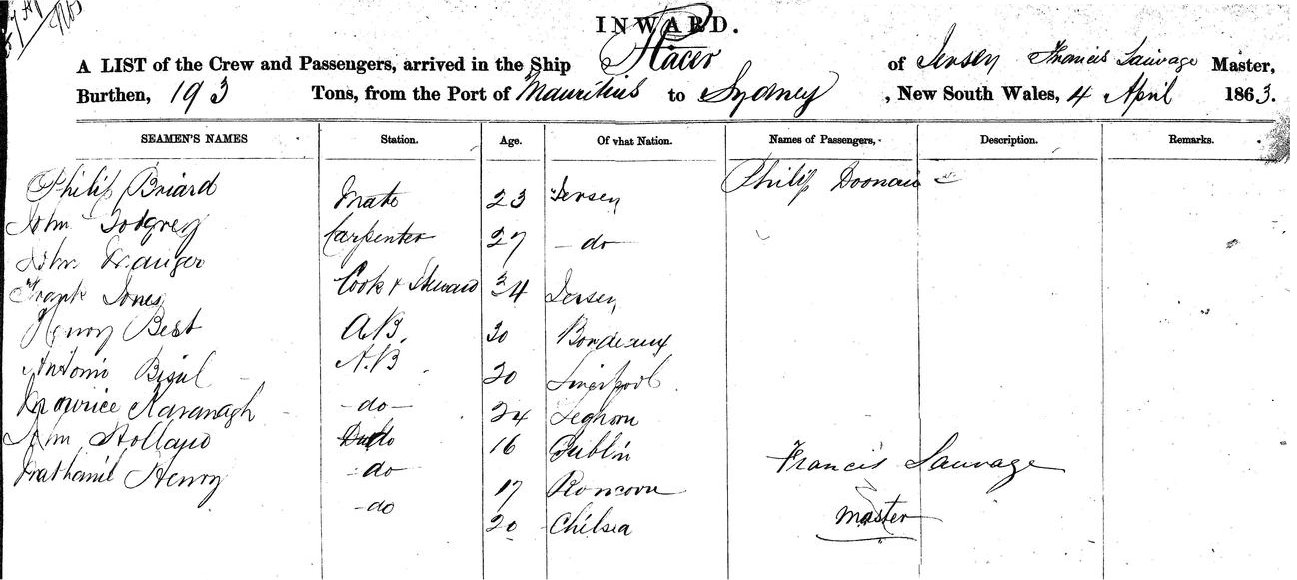 INWARD.
A LIST of the Crew and Passengers, arrived in the Ship Racer of Jersey Francis Sauvage Master,
Burthen, 193 Tons, from the Port of Mauritius to Sydney, New South Wales, 4 April 1863.
SEAMEN'S NAMES Station. Age. Of what Nation. Names of Passengers, Description. Remarks.
Philip Briard Mate 23 Jersey Philip
John Godfrey Carpenter 27 - do
John
Frank Jones Cook & Steward 34 Jersey
Henry Best A.B. 20 Bordeaux
Antoni A.B 20 Liverpool
Maurice Kavanagh - do - 24 Leghorn
John Holland Ditto 16 Dublin
Nathaniel Henry - do 17
- do 20 Chelsea
Francis Sauvage
Master